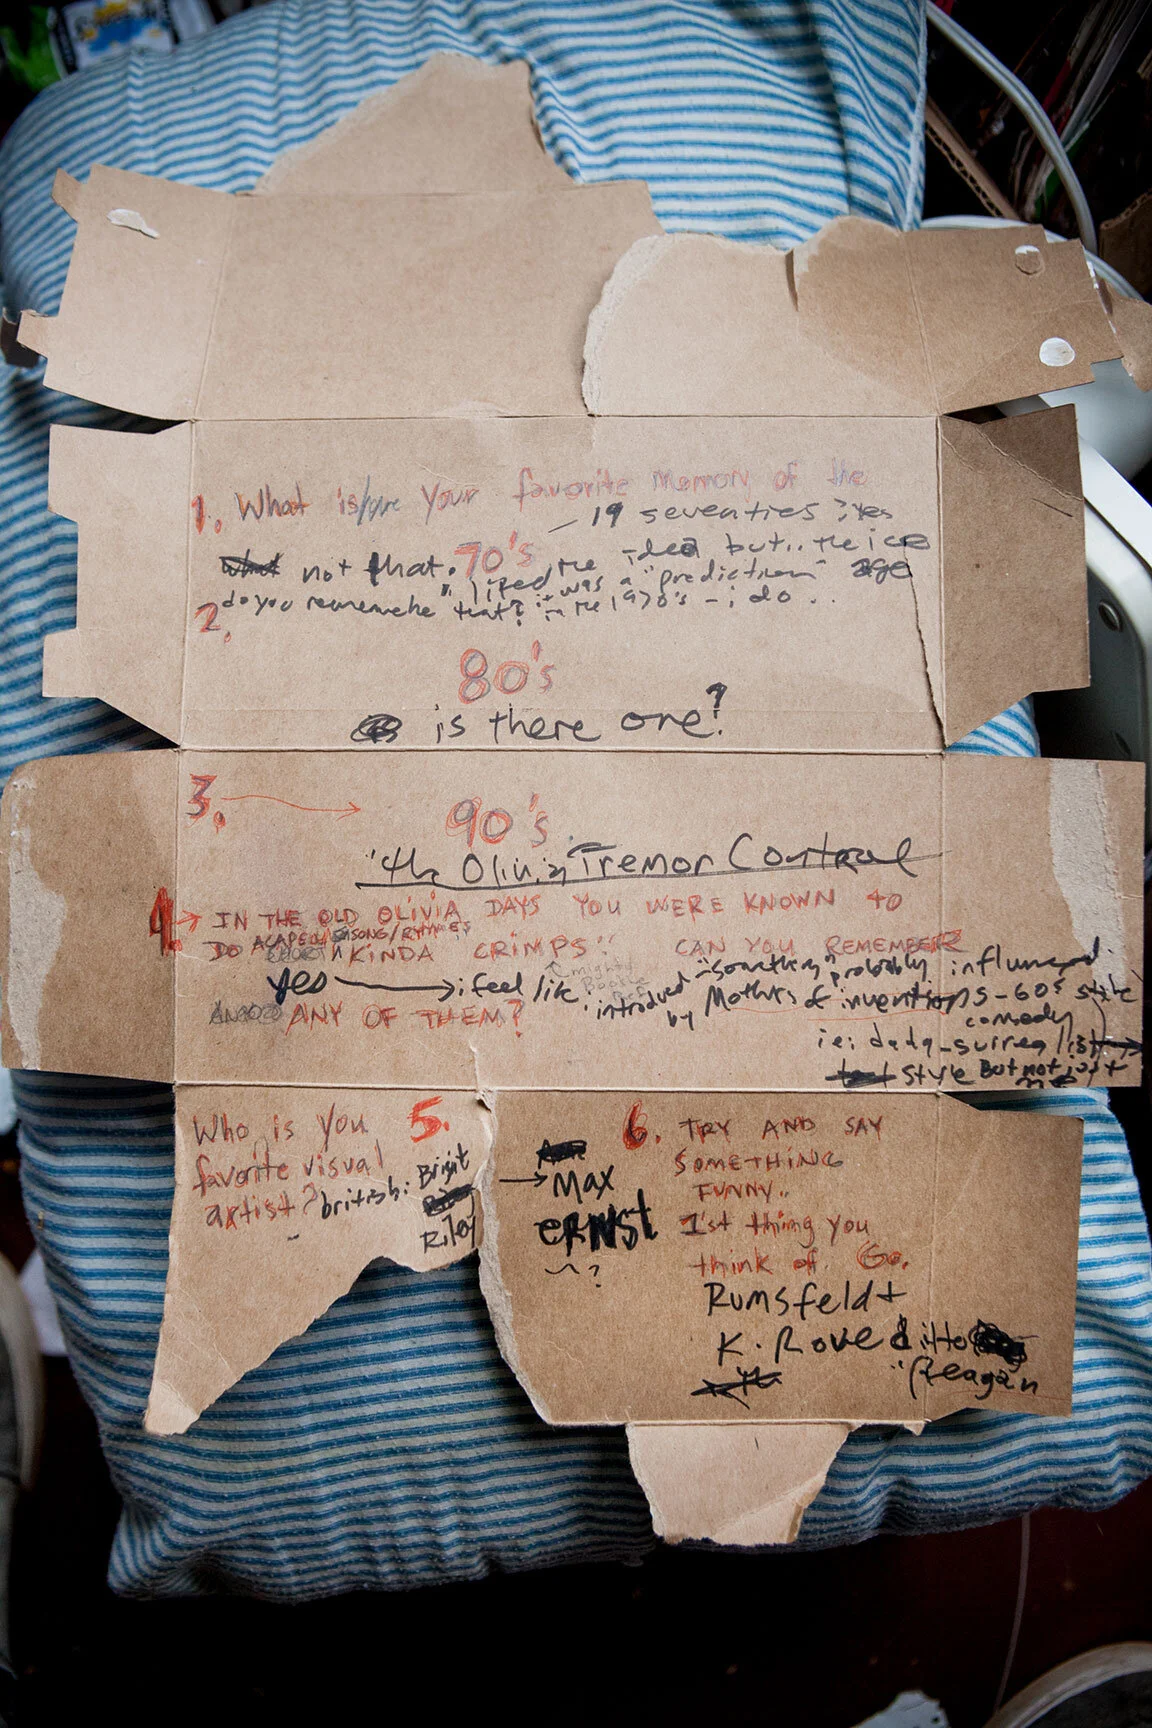 1. What is/are your favorite memory of the
70's
— 19 seventies ? yes
not that. I liked the idea but.. the ice age
do you rememeber that? it was a "prediction"
in the 1970's - i do ..
2.
80's
is there one?
3.
90's
"the Olivia Tremor Control
4. IN THE OLD OLIVIA DAYS YOU WERE KNOWN TO
DO ACAPELLA SONG/RHYMES
KINDA CRIMPS". CAN YOU REMEMBER
yes i feel like introduced "something" probably influenced
by Mothers of inventions - 60s style
ANY OF THEM?
comedy
ie: dada-surrealist
style But not just
Who is you 5.
favorite visual
artist? british: Brigit
Riley
Max
ERNST
?
6. TRY AND SAY
SOMETHING
FUNNY..
1'st thing you
think of. Go.
Rumsfeld +
K. Rove ditto
"Reagan